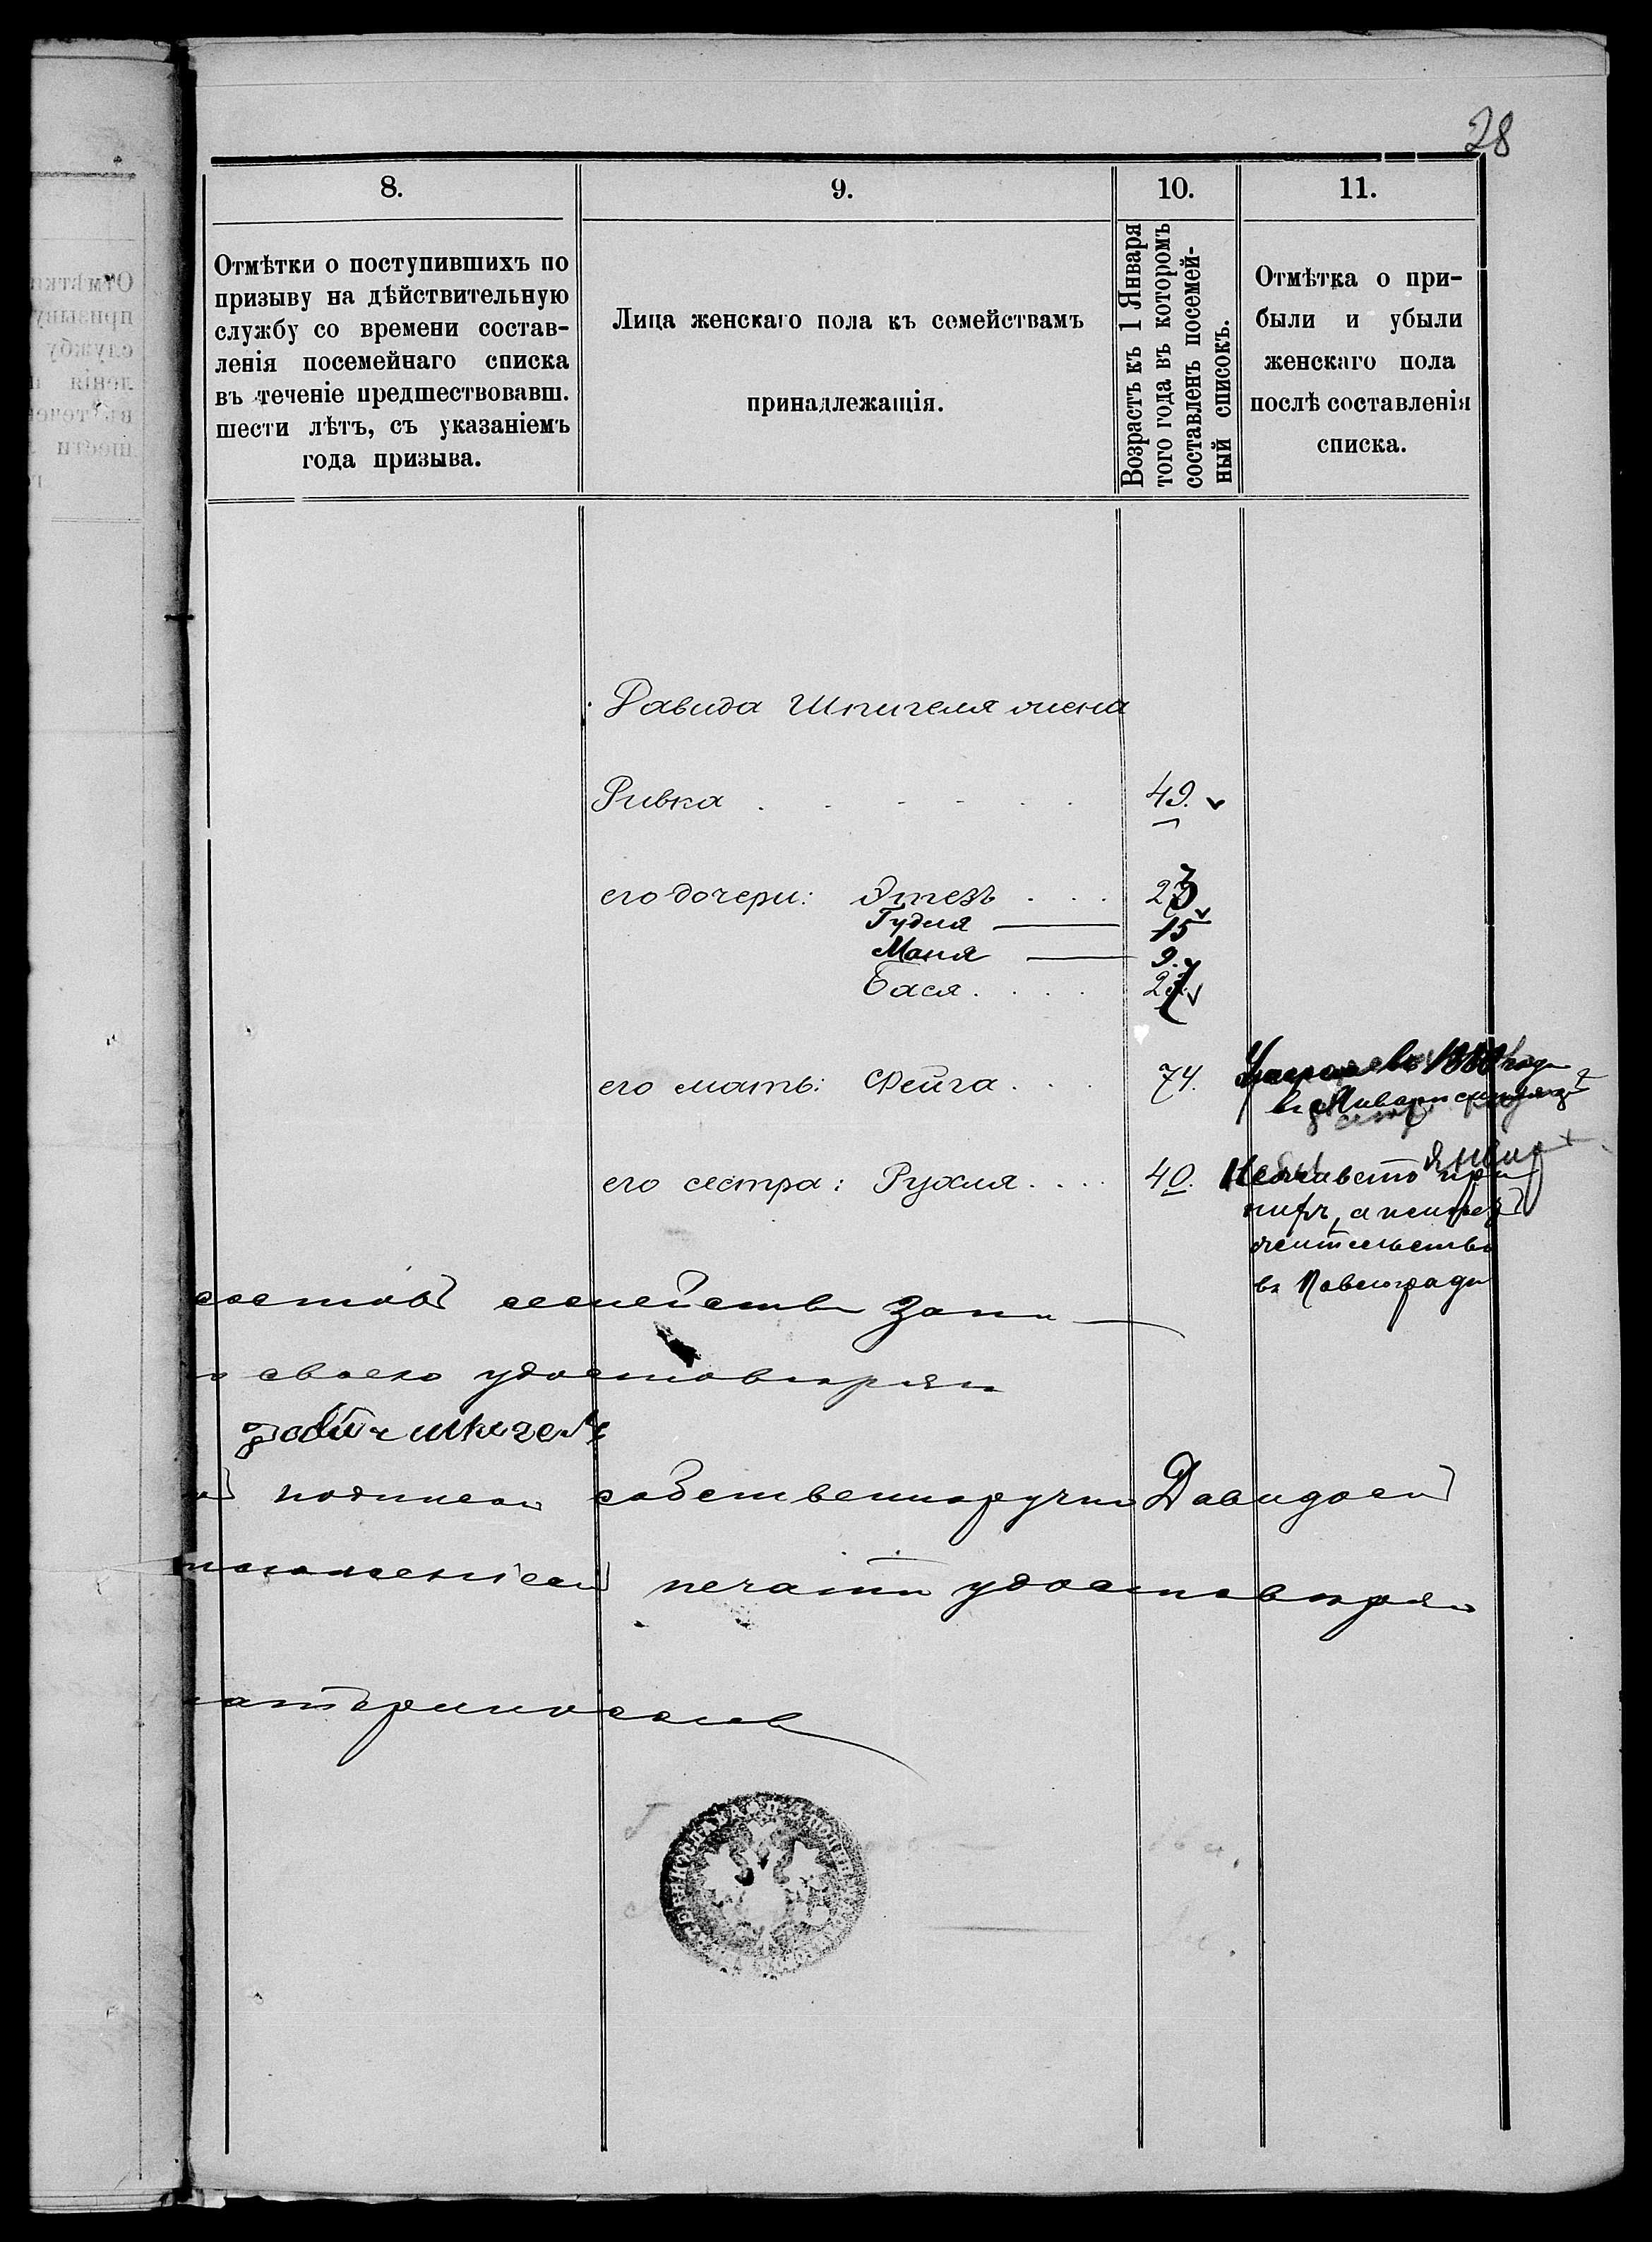 28
8.
9.
10.
11.
Отмѣтки о поступившихъ по
призыву на дѣйствительную
службу со времени состав-
ленія посемейнаго списка
въ теченіе предшествовавш.
шести лѣтъ, съ указаніемъ
года призыва.
Лица женскаго пола къ семействамъ
принадлежащія.
Возрастъ къ 1 Января
того года въ которомъ
составленъ посемей-
ный списокъ.
Отмѣтка о при-
были и убыли
женскаго пола
послѣ составленія
списка.
Давида Шпигеля жена
Ривка . . . . . . 49.
его дочери: Этезъ . . .
Гудля — 15
Маня — 9.
Бася . . . . 27
его мать: Фейга . . . 74.
въ Январи
его сестра: Рухля . . . . 40.
жительство
въ Павлоградѣ
составъ семейства
своего удостовѣряю
подписаны собственноручно Давидомъ
печати удостовѣряю